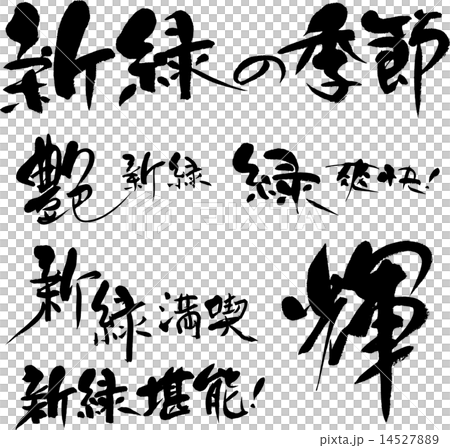 新緑の季節
艶 新緑
緑 爽快!
新緑満喫
輝
新緑堪能!
PIXTA
pixta.jp - 14527889